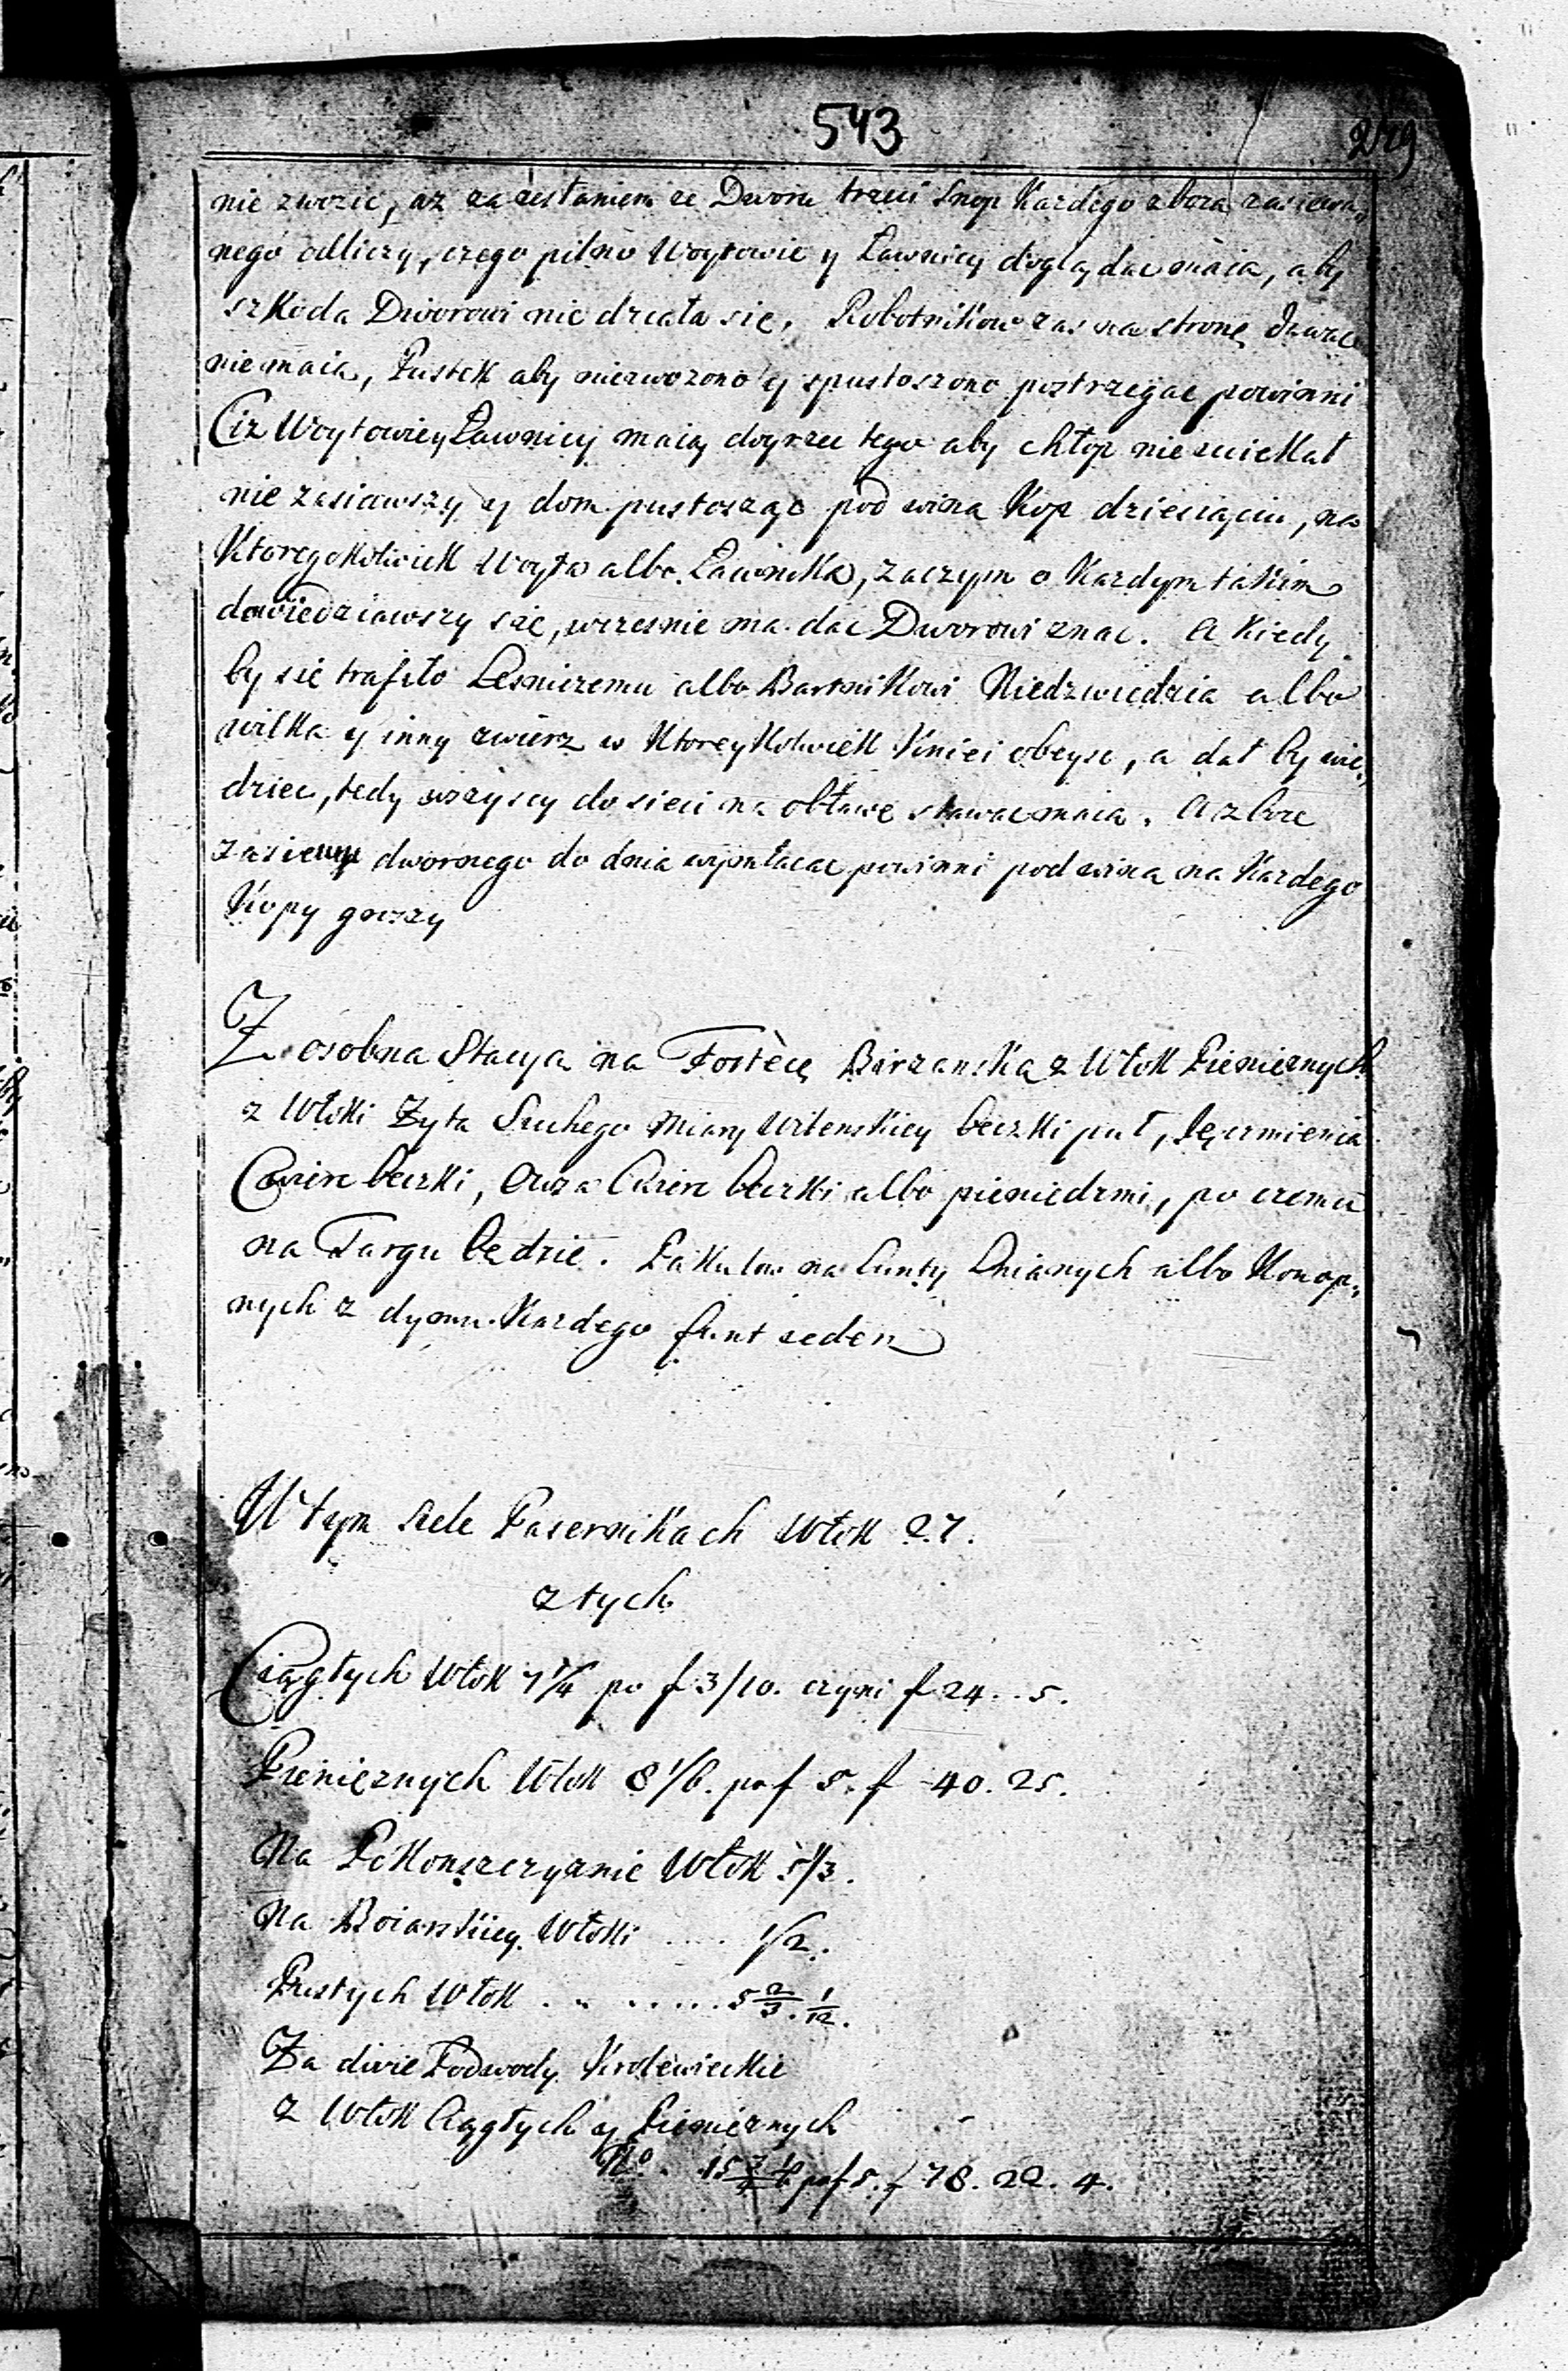 543
nie zwozic, az za zesłaniem ze Dworu trzeci Snop Kazdego zboza zasiewa„
nego odliczy, czego pilno Woytowie y Ławnicy doglądac maia, aby
szkoda Dworowi nie działa się, Robotnikow zas na stronę dawac
nie maia, Pustek aby niezwozono y spustoszono postrzegac powinni
Ciz Woytowie y Ławnicy maią dogrzec tego aby chłop nie uciekał
nie zasiawszy y dom pustosząc pod wina Kop dziesiąciu, na
Ktoregokolwiek Woyta albo Ławnika, zaczym o Kazdym takim
dowiedziawszy się, wczesnie ma dac Dworowi znac. A kiedy
by się trafiło Lesniczemu albo Bartnikowi Niedzwiedzia albo
wilka y inny zwierz w Ktoreykolwiek Kniei obeysc, a dał by wie„
dziec, tedy wszyscy do sieci na obławę stawac maia. A zboze
zasiewu dwornego do dnia wymłacac powinni pod wina na Kazdego
Kopy groszy
Z osobna Stacya na Fortècę Birzanską z Włok Pienieznych
z Włoki Zyta Suchego miary Wilenskiey beczki puł, Jęczmienia
Cwierc beczki, Owsa Cwierc beczki albo pieniedzmi, po czemu
na Targu będzie. Pakułow na Lunty Lnianych albo Konop„
nych z dymu Kazdego funt ieden
W tym Siele Pasernikach Włok 27.
z tych
Ciągłych Włok 7 1/4 po f 3/10. czyni f 24..5.
Pienięznych Włok 8 1/6. po f 5. f 40. 25.
Na Włok 5 1/3.
Na Boiarskiey Włoki .... 1/2.
Pustych Włok ....... 5 2/3. 1/12.
Za dwie Podwody Krolewieckie
z Włok Ciągłych y Pienięznych
No. 15 po f 5. f 78. 22. 4.